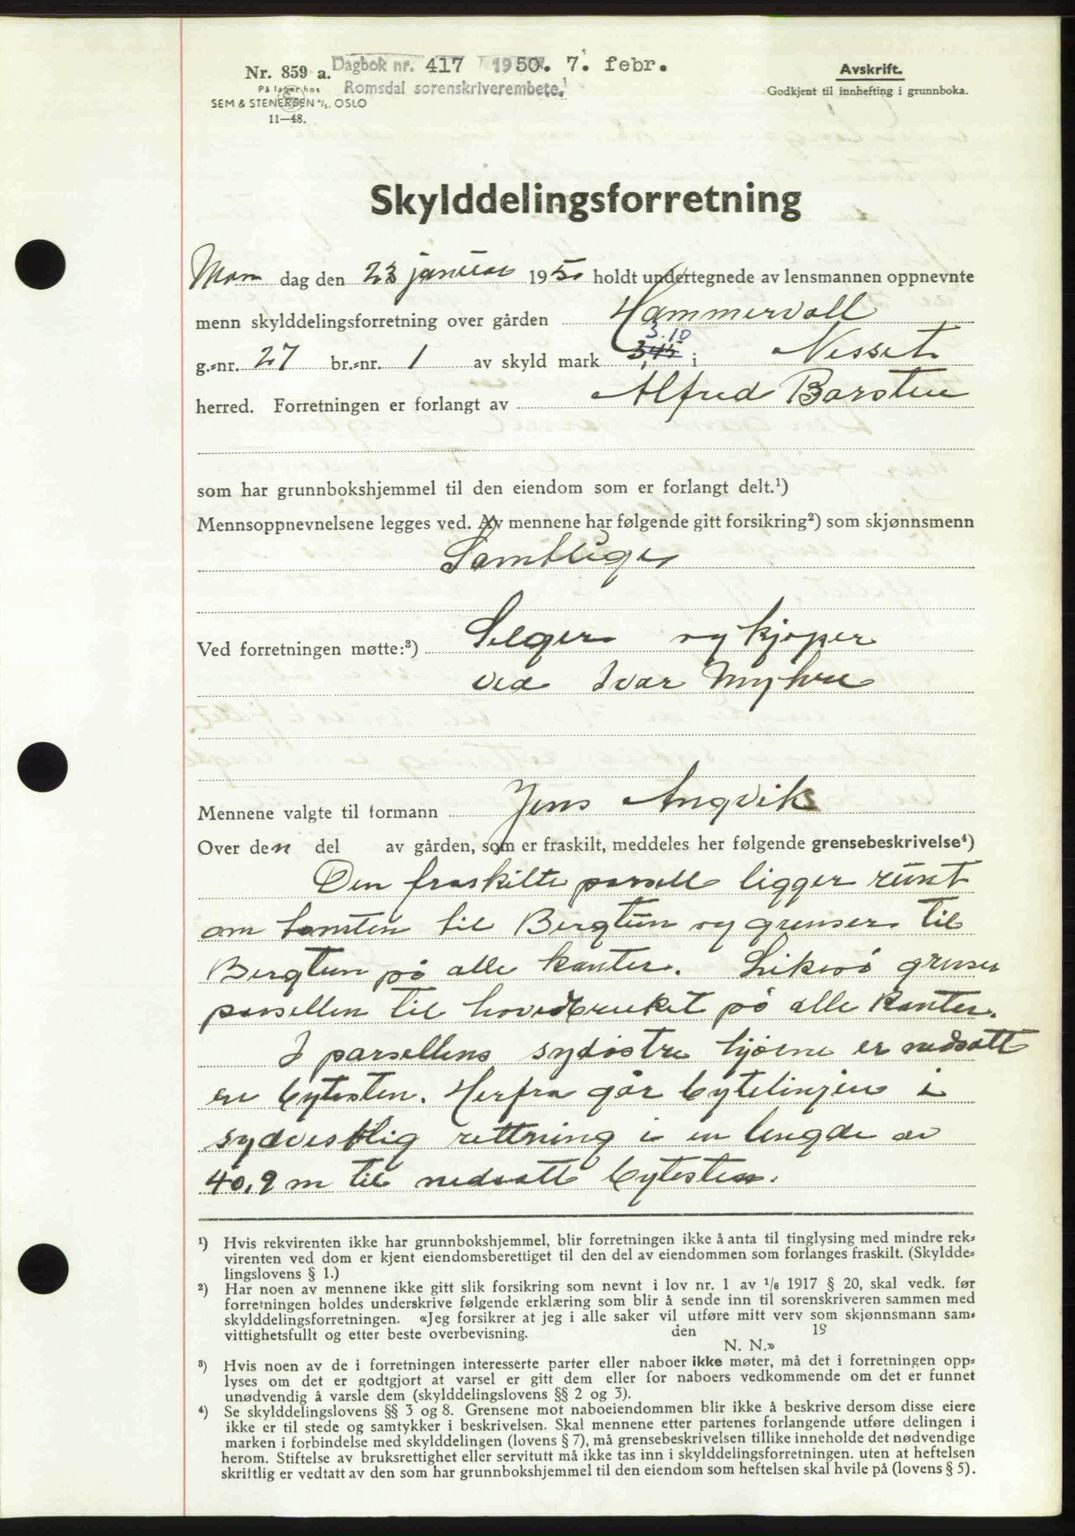 Nr. 859 a.
På lager hos
SEM & STENERSEN A/S. OSLO
11—48.
Dagbok nr. 417 1950. 7. febr.
Romsdal sorenskriverembete.
Avskrift.
Godkjent til innhefting i grunnboka.
Skylddelingsforretning
Man dag den 23 januar 1950 holdt undertegnede av lensmannen oppnevnte
menn skylddelingsforretning over gården Hammervoll
3.10
g.-nr. 27 br.-nr. 1 av skyld mark 3,45 i Nesset
herred. Forretningen er forlangt av Alfred Barsten
som har grunnbokshjemmel til den eiendom som er forlangt delt.¹)
Mennsoppnevnelsene legges ved. Av mennene har følgende gitt forsikring²) som skjønnsmenn
Samtlige
Ved forretningen møtte:³) Selger og kjøper
ved Ivar Myhre
Mennene valgte til formann Jens Angvik
Over den del av gården, som er fraskilt, meddeles her følgende grensebeskrivelse⁴)
Den fraskilte parsell ligger runt
om tomten til Bergtun og grenser til
Bergtun på alle kanter. Likeså grenser
parsellen til hovedbruket på alle kanter.
I parsellens sydøstre hjørne er nedsatt
en bytesten. Herfra går bytelinjen i
sydvestlig rettning i en lengde av
40,9 m til nedsatt bytesten.
¹) Hvis rekvirenten ikke har grunnbokshjemmel, blir forretningen ikke å anta til tinglysing med mindre rek-
virenten ved dom er kjent eiendomsberettiget til den del av eiendommen som forlanges fraskilt. (Skyldde-
lingslovens § 1.)
²) Har noen av mennene ikke gitt slik forsikring som nevnt i lov nr. 1 av ¹/₆ 1917 § 20, skal vedk. før
forretningen holdes underskrive følgende erklæring som blir å sende inn til sorenskriveren sammen med
skylddelingsforretningen. «Jeg forsikrer at jeg i alle saker vil utføre mitt verv som skjønnsmann sam-
vittighetsfullt og etter beste overbevisning. den 19
N. N.»
³) Hvis noen av de i forretningen interesserte parter eller naboer ikke møter, må det i forretningen opp-
lyses om det er godtgjort at varsel er gitt dem eller for naboers vedkommende om det er funnet
unødvendig å varsle dem (skylddelingslovens §§ 2 og 3).
⁴) Se skylddelingslovens §§ 3 og 8. Grensene mot naboeiendommen blir ikke å beskrive dersom disse eiere
ikke er til stede og samtykker i beskrivelsen. Skal mennene etter partenes forlangende utføre delingen i
marken i forbindelse med skylddelingen (lovens § 7), må grensebeskrivelsen tillike inneholde det nødvendige
herom. Stiftelse av bruksrettighet eller servitutt må ikke tas inn i skylddelingsforretningen. uten at heftelsen
skriftlig er vedtatt av den som har grunnbokshjemmel til den eiendom som heftelsen skal hvile på (lovens § 5).